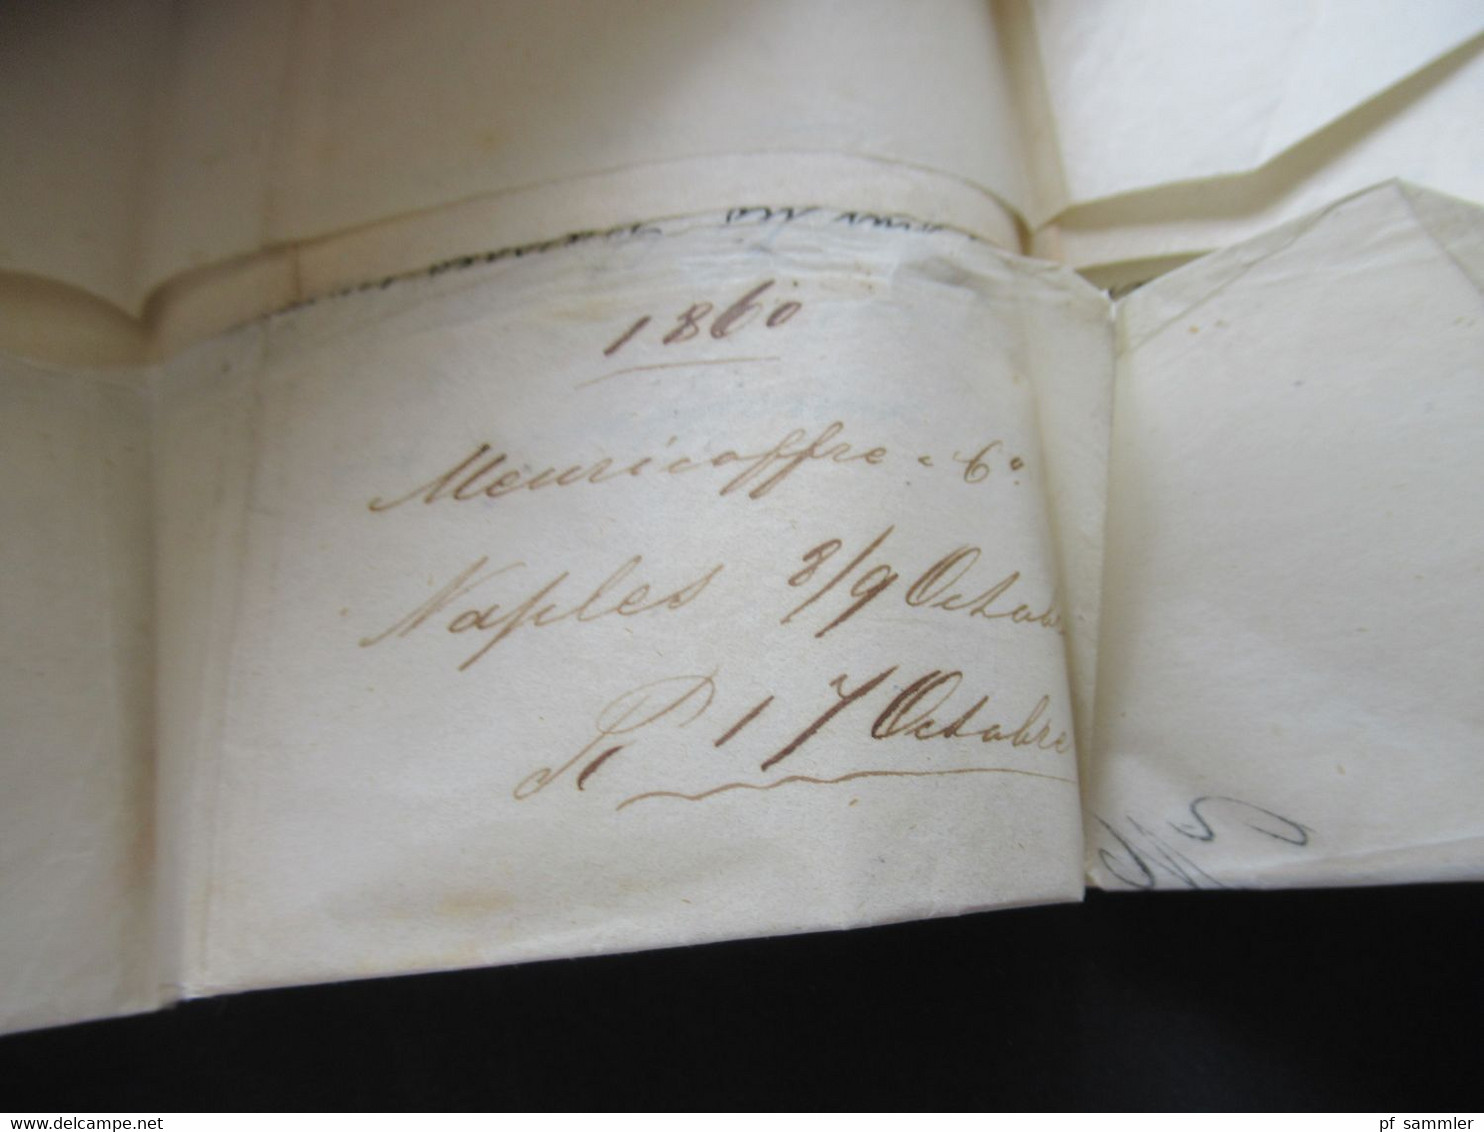 1860
Meuricoffre & Cº
Naples 8/9 Octobre
R 17 Octobre
www.delcampe.net
pf_sammler